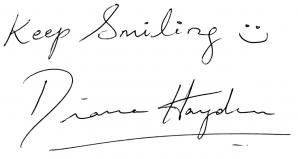 Keep Smiling :)
Diane Hayden